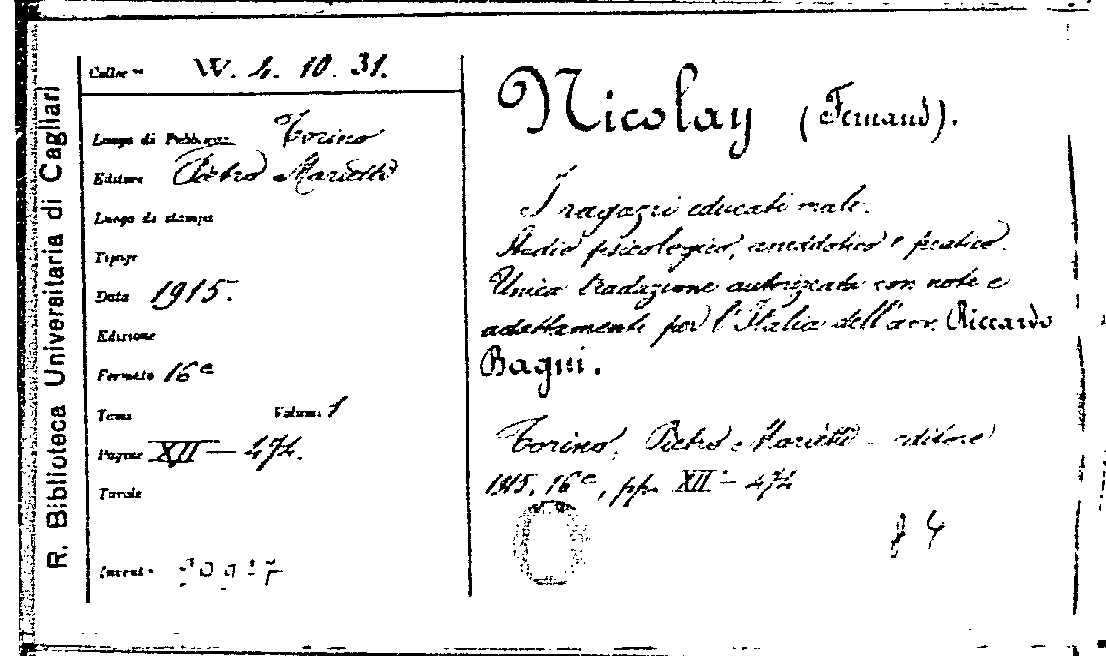 R. Biblioteca Universitaria di Cagliari
W. 4. 10. 31.
Luogo di Pubbcaz. Torino
Editore Pietro Marietti
Luogo di stampa
Tipogr
Data 1915.
Edizione
Formato 16º
Tomi Volumi 1
Pagine XII — 474.
Tavole
Invent.
Nicolay (Fernand).
I ragazzi educati male.
Studio psicologico, aneddotico e pratico.
Unica traduzione autorizzata con note e
adattamenti per l'Italia dell'avv. Riccardo
Bagni.
Torino, Pietro Marietti editore
1915, 16º, pp. XII — 474